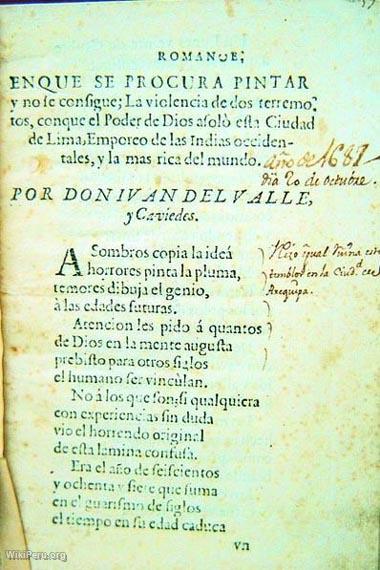 ROMANCE,
ENQUE SE PROCURA PINTAR
y no se consigue; La violencia de dos terremo-
tos, conque el Poder de Dios asolò esta Ciudad
de Lima, Emporeo de las Indias occiden-
tales, y la mas rica del mundo.
año de 1687
dia 20 de octubre.
POR DON IVAN DEL VALLE,
y Caviedes.
ASombros copia la ideá
horrores pinta la pluma,
temores dibuja el genio,
à las edades futuras.
Hizo igual ruina este
temblor en la Ciud.d de
Arequipa.
Atencion les pido á quantos
de Dios en la mente augusta
prebisto para otros siglos
el humano ser vincùlan.
No á los que son, si qualquiera
con experiencias sin duda
vio el horrendo original
de esta lamina confusa.
Era el año de seiscientos
y ochenta y siete que suma
en el guarismo de siglos
el tiempo en su edad caduca
Vn
WikiPeru.org